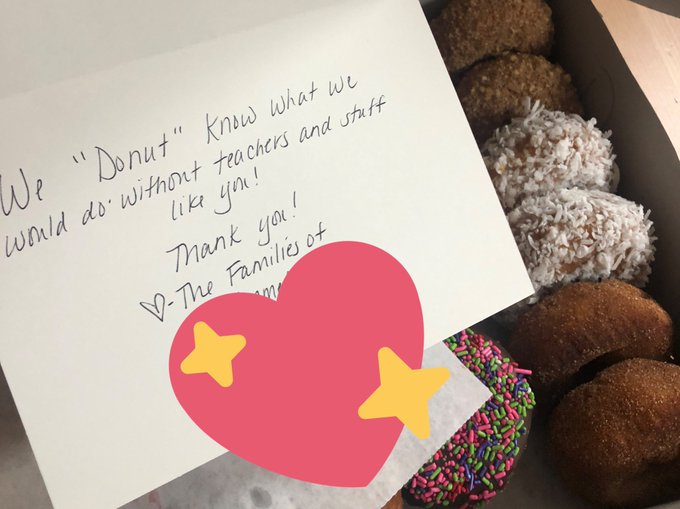 We "Donut" know what we
would do without teachers and stuff
like you!
Thank you!
♡-The Families of